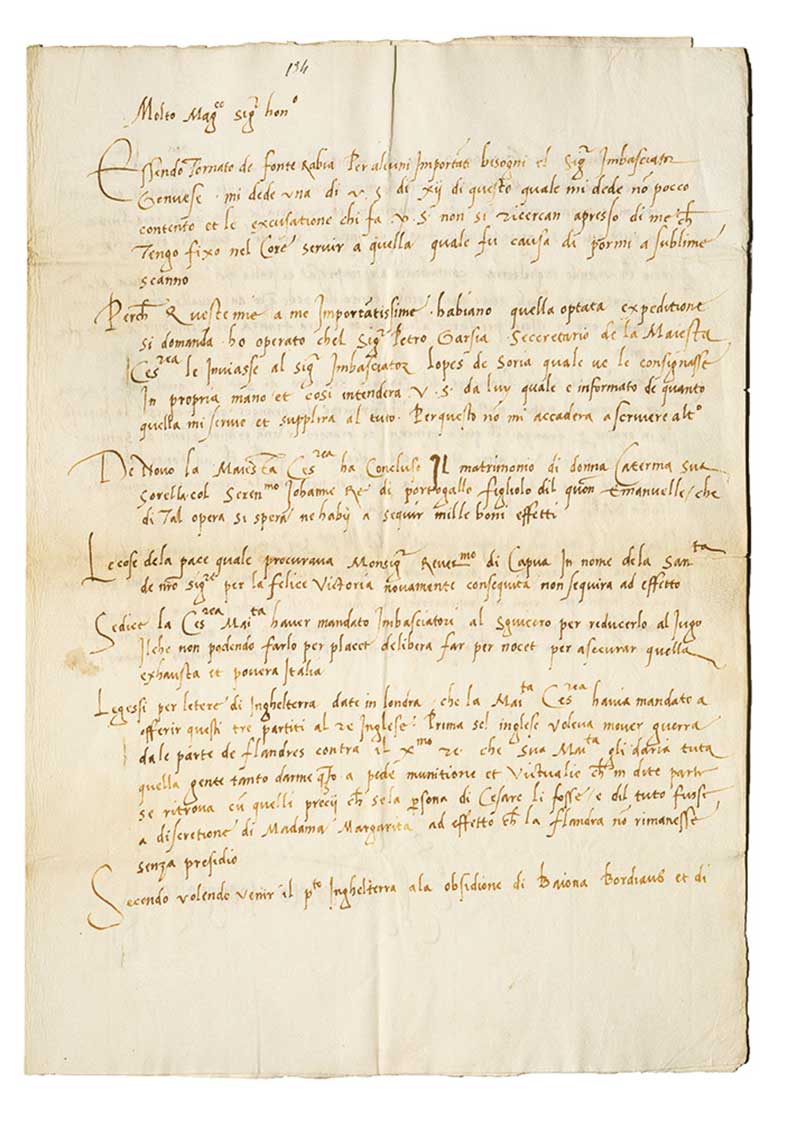 134
Molto Mag.co Sig.r hon.o
Essendo Tornato de fonte Rabia Per alcuni Importati bisogni el Sig.r Imbasciator
Genuese · mi dede una di v. s di xij di questo quale mi dede no pocco
contento et le excusatione chi fa v. s non si ricercan apresso di me ch
Tengo fixo nel Core servir a quella quale fu causa di pormi a sublime
scanno
Perch Queste mie a me Importatissime · habiano quella optata expeditione
si domanda · ho operato chel Sig.r Petro Garsia Seccretario de la Maiesta
Ces.rea le Inviasse al sig.r Imbasciator Lopes de Soria quale ve le consignasse
In propria mano et cosi intendera v. s. da luy quale e informato de quanto
quella mi scrive et supplira al tuto. Per questo no mi accadera a scrivere alt.o
De Novo la Maiesta Ces.rea ha Concluso Il matrimonio di donna Caterina sua
sorella col Seren.mo Iohanne Re di portogallo figliolo dil quon Emanuelle / che
di Tal opera si spera ne habij a sequir mille boni effetti
Le cose dela pace quale procurava Monsig.r Rever.mo di Capua In nome dela San.ta
de nro sig.re per la felice Victoria novamente consequita non sequira ad effetto
Se dice la Ces.rea Mai.ta haver mandato Imbasciatori al Sguicero per reducerlo al Jugo
Il che non podendo farlo per placet delibera far per nocet per asecurar quella
exhausta et povera Italia
Legessi per letere di Inghelterra date in londra che la Mai.ta Ces.rea havia mandato a
offerir questi tre partiti al re Inglese: Prima sel inglese voleva mover guerra
dale parte de flandres contra il X.mo re che Sua Mai.ta gli daria tuta
quella gente tanto darme q.to a pede munitione et Victualie ch in dite parte
se ritrova cu quelli precij ch se la persona di Cesare li fosse / e dil tuto fusse
a discretione di Madama Margarita ad effetto ch la flandra no rimanesse
senza presidio
Secondo volendo venir il p.to Inghelterra ala obsidione di Baiona Bordiaus et di